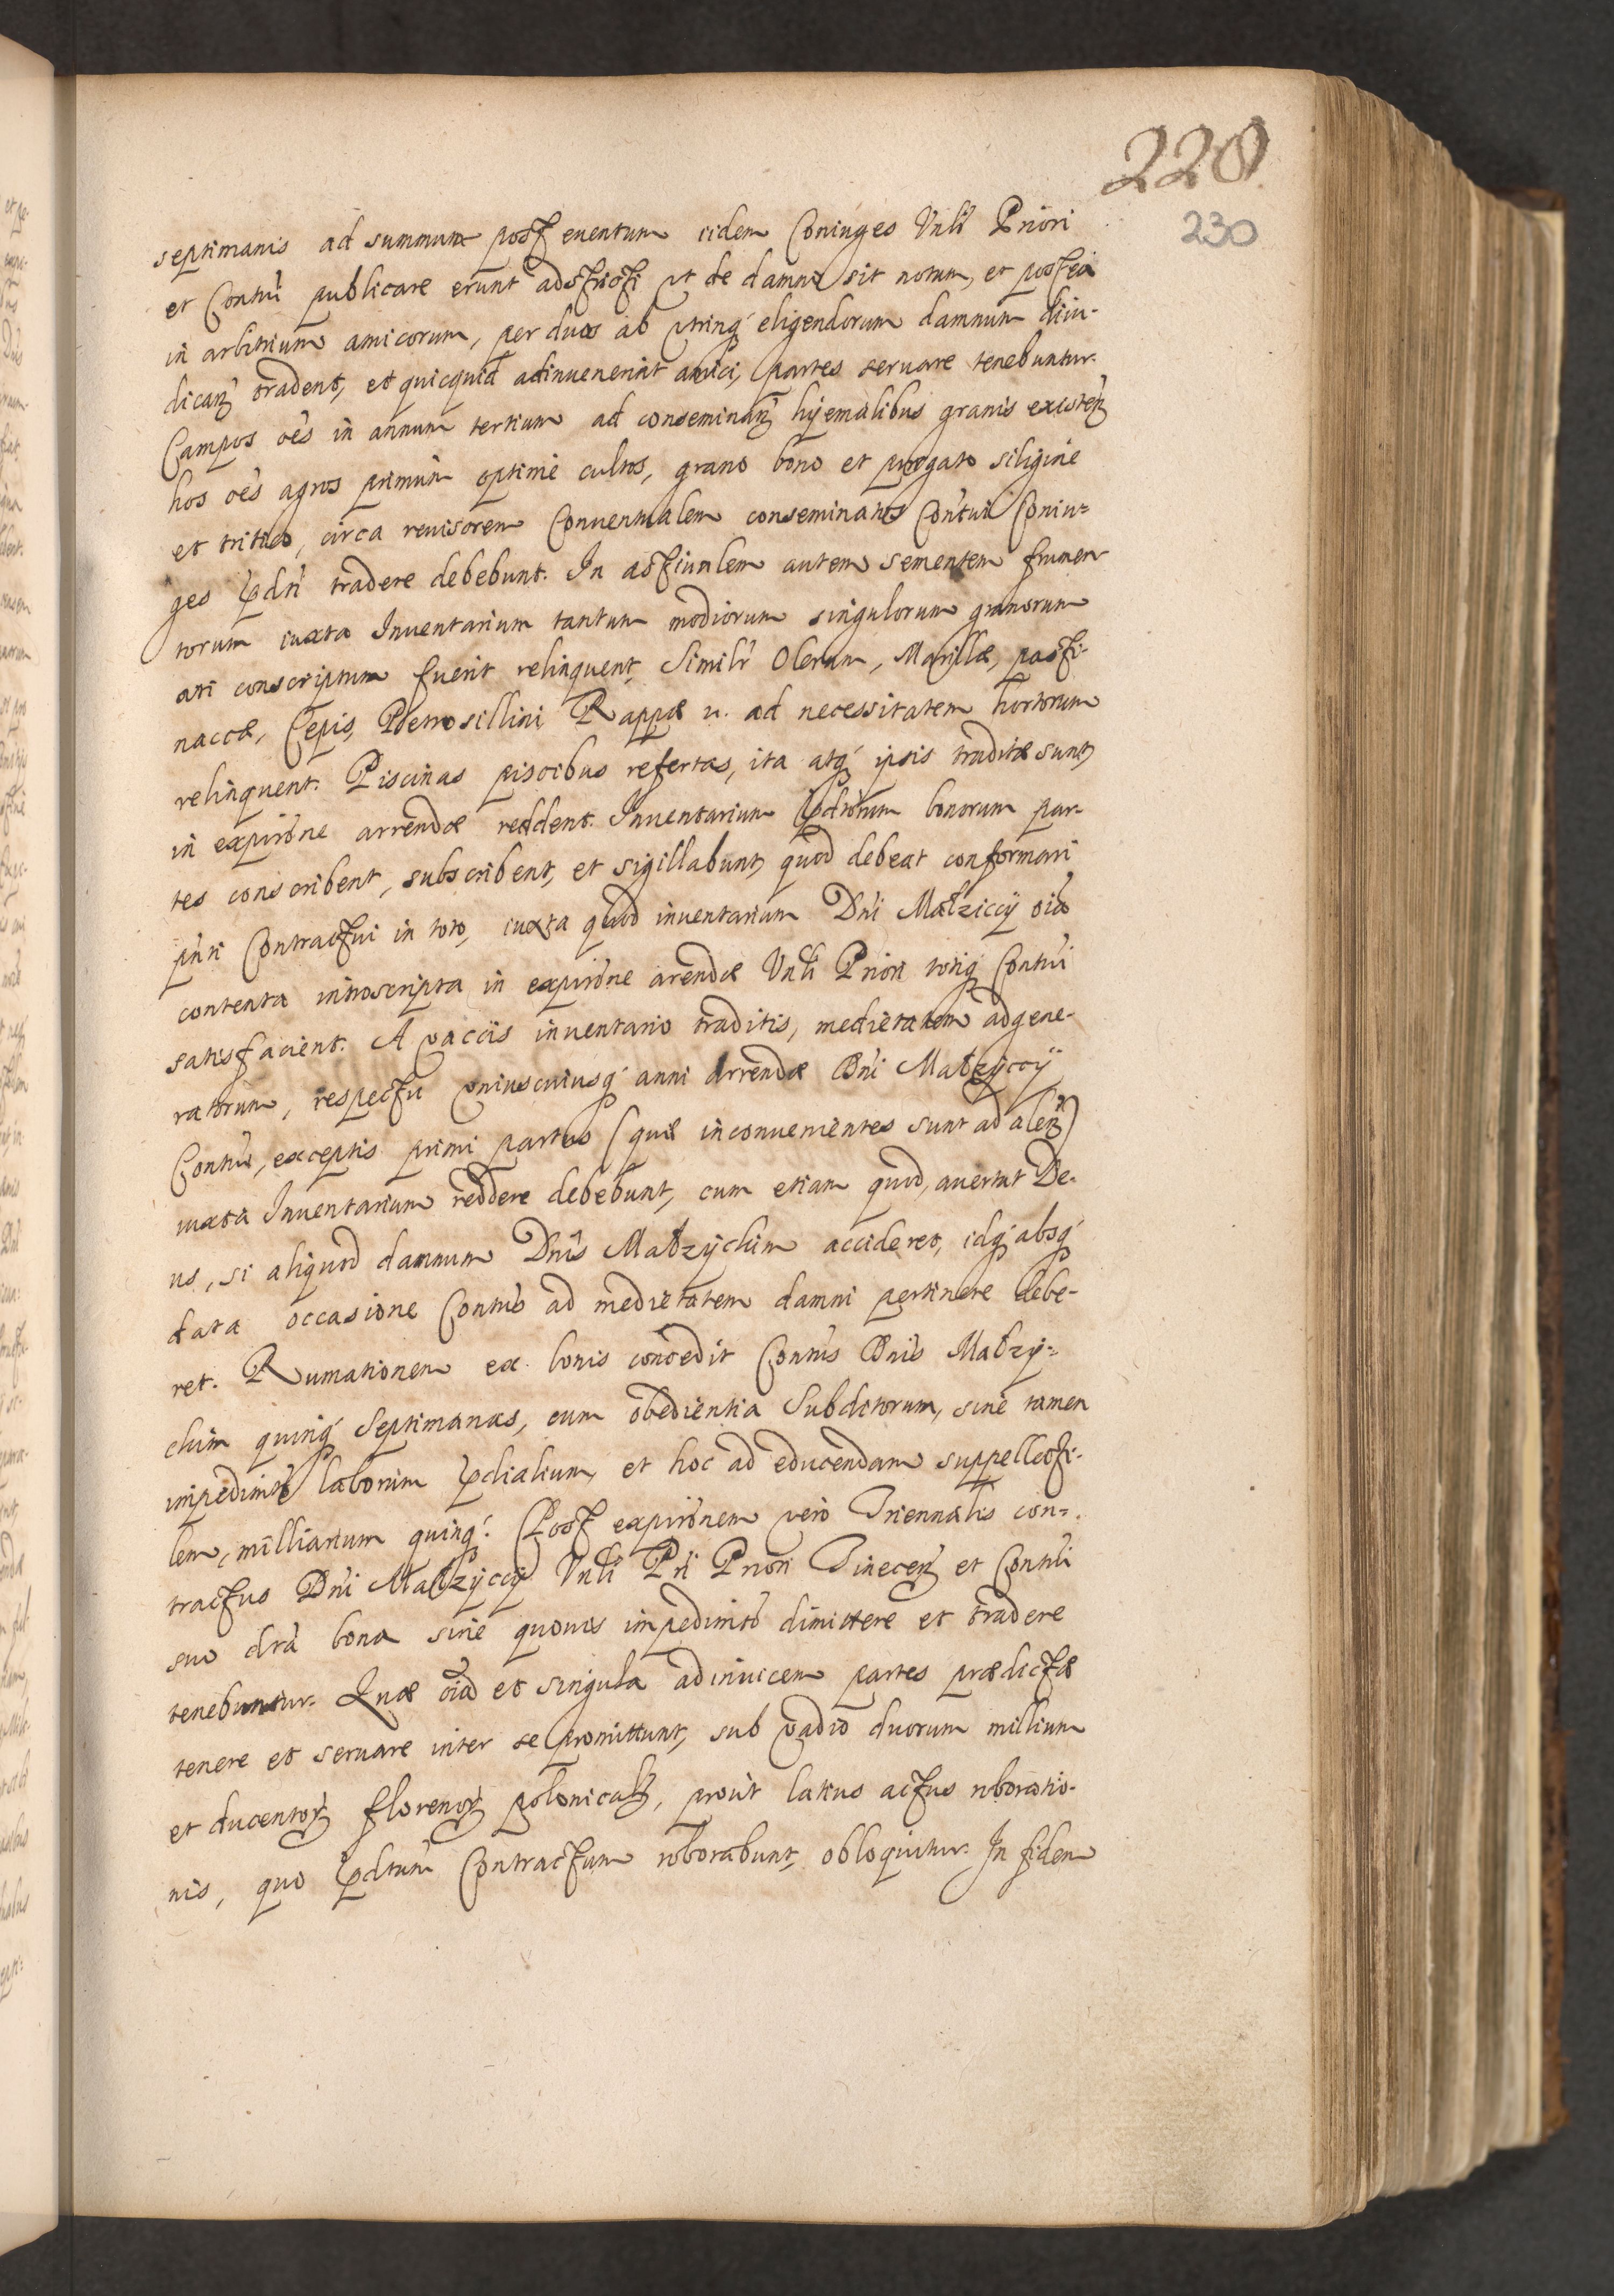 228
230
septimanis ad summum post euentum iidem Coniuges Vnli Priori
et Contui publicare erunt adstricti vt de damno sit notum, et postea
in arbitrium amicorum, per duos ab vtrinq́ eligendorum damnum diiu-
dicaņ tradent, et quicquid adinuenerint amici, partes seruare tenebuntur.
Campos oēs in annum tertium ad conseminaņ hyemalibus granis existeņ
hos oēs agros primum optimè cultos, grano bono et purgato siligine
et tritico, circa reuisorem Conuentualem conseminatos Contui Coniu=
ges p̄dti tradere debebunt. In æstiualem autem sementem frumen-
torum iuxta Inuentarium tantum modiorum singulorum granorum
ati conscriptum fuerit relinquent, Similr Olerum, Marillæ, pasti-
naccæ, Cepis, Petrosillini Rappæ u. ad necessitatem hortorum
relinquent. Piscinas piscibus refertas, ita atq́ ipsis traditæ sunt,
in expirōne arrendæ reddent. Inuentarium p̄dtorum bonorum par-
tes conscribent, subscribent, et sigillabunt, quod debeat conformari
pn̄ti Contractui in toto, iuxta quod inuentarium Dn̄i Malziccÿ oīa
contenta introscripta in expirōne arendæ Vnli Priori totiq́ Contui
satisfacient. A vaccis inuentario traditis, medietatem adgene-
ratorum, respectu vniuscuiusq́ anni Arrendæ Dn̄i Malzyccÿ
Contui, exceptis primi partus (quæ inconuenientes sunt ad aleņ)
iuxta Inuentarium reddere debebunt, cum etiam quod, auertat De-
us, si aliquod damnum Dn̄is Malzychim accideret, idq́ absq́
data occasione Contus ad medietatem damni pertinere debe-
ret. Rumationem ex bonis concedit Contus Dn̄is Malzy=
chim quinq́ Septimanas, cum obedientia Subditorum, sine tamen
impedimto laborum p̄dialium, et hoc ad educendam suppellecti-
lem, milliarium quinq́. Post expirōnem verò Triennalis con=
tractus Dn̄i Malzyccÿ Vnli Pri Priori Tineceņ et Contui
suo dta bona sine quouis impedimto dimittere et tradere
tenebuntur. Quæ oīa et singula adinuicem partes prædictæ
tenere et seruare inter se promittunt, sub vadio duorum millium
et ducentoꝝ florenoꝝ polonicaliū, prout latius actus roboratio-
nis, quo p̄dtum Contractum roborabunt, obloquitur. In fidem